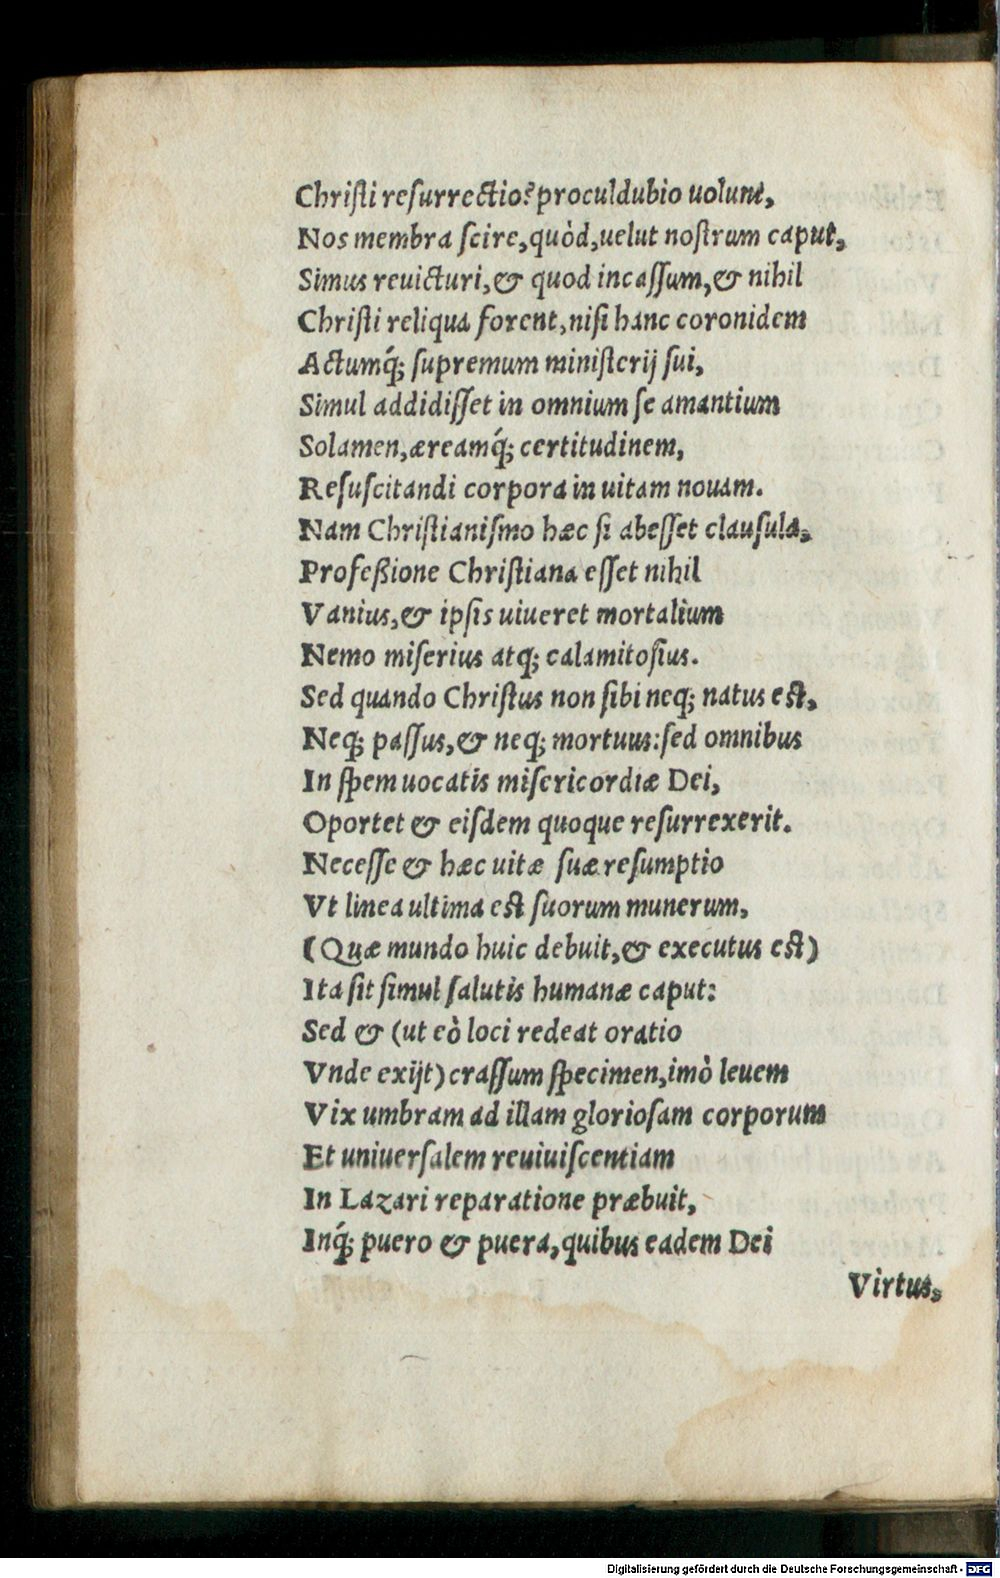 Christi resurrectio? proculdubio uolunt,
Nos membra scire, quòd, uelut nostrum caput,
Simus reuicturi, & quod incassum, & nihil
Christi reliqua forent, nisi hanc coronidem
Actumq́; supremum ministerij sui,
Simul addidisset in omnium se amantium
Solamen, æreamq́; certitudinem,
Resuscitandi corpora in uitam nouam.
Nam Christianismo hæc si abesset clausula,
Profeßione Christiana esset nihil
Vanius, & ipsis uiueret mortalium
Nemo miserius atq; calamitosius.
Sed quando Christus non sibi neq; natus est,
Neq; passus, & neq; mortuus: sed omnibus
In spem uocatis misericordiæ Dei,
Oportet & eisdem quoque resurrexerit.
Necesse & hæc uitæ suæ resumptio
Vt linea ultima est suorum munerum,
(Quæ mundo huic debuit, & executus est)
Ita sit simul salutis humanæ caput:
Sed & (ut eò loci redeat oratio
Vnde exijt) crassum specimen, imò leuem
Vix umbram ad illam gloriosam corporum
Et uniuersalem reuiuiscentiam
In Lazari reparatione præbuit,
Inq́; puero & puera, quibus eadem Dei
Virtus,
Digitalisierung gefördert durch die Deutsche Forschungsgemeinschaft - DFG